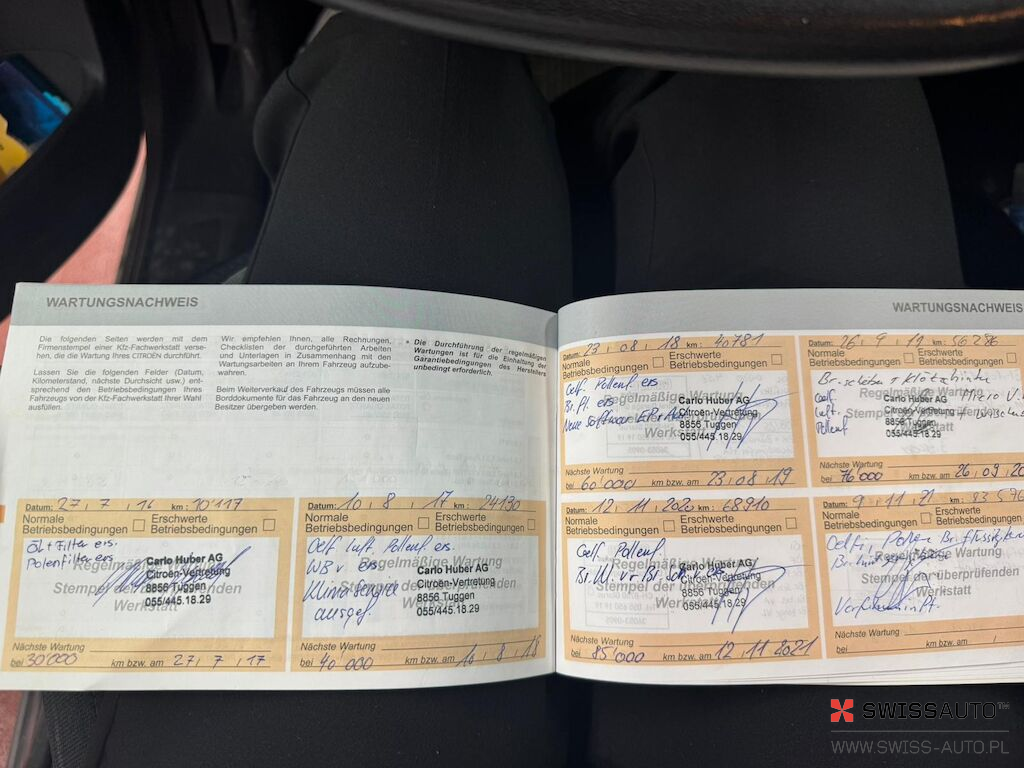 WARTUNGSNACHWEIS
Die folgenden Seiten werden mit dem
Firmenstempel einer Kfz-Fachwerkstatt verse-
hen, die die Wartung Ihres CITROËN durchführt.
Lassen Sie die folgenden Felder (Datum,
Kilometerstand, nächste Durchsicht usw.) ent-
sprechend den Betriebsbedingungen Ihres
Fahrzeugs von der Kfz-Fachwerkstatt Ihrer Wahl
ausfüllen.
Wir empfehlen Ihnen, alle Rechnungen,
Checklisten der durchgeführten Arbeiten
und Unterlagen in Zusammenhang mit den
Wartungsarbeiten an Ihrem Fahrzeug aufzube-
wahren.
Beim Weiterverkauf des Fahrzeugs müssen alle
Borddokumente für das Fahrzeug an den neuen
Besitzer übergeben werden.
* Die Durchführung der regelmäßigen
Wartungen ist für die Einhaltung der
Garantiebedingungen des Herstellers
unbedingt erforderlich.
Datum: 27 / 7 / 16 km: 10'117
Normale
Betriebsbedingungen
Erschwerte
Betriebsbedingungen
Öl + Filter ers.
Polenfilter ers
Regelmäßige Wartung
Stempel der überprüfenden
Werkstatt
Carlo Huber AG
Citroën-Vertretung
8856 Tuggen
055/445.18.29
Nächste Wartung
bei 30'000 km bzw. am 27 / 7 / 17
Datum: 10 / 8 / 17 km: 24130
Normale
Betriebsbedingungen
Erschwerte
Betriebsbedingungen
Oelf Luft Pollenf. ers.
WB v ers
ausgef.
Regelmäßige Wartung
Stempel der überprüfenden
Werkstatt
Carlo Huber AG
Citroën-Vertretung
8856 Tuggen
055/445.18.29
Nächste Wartung
bei 40'000 km bzw. am 10 / 8 / 18
WARTUNGSNACHWEIS
Datum: 23 / 08 / 18 km: 40781
Normale
Betriebsbedingungen
Erschwerte
Betriebsbedingungen
Oelf. Pollenf. ers
Br. fl. ers
Neue Software
Regelmäßige Wartung
Werkstatt
Carlo Huber AG
Citroën-Vertretung
8856 Tuggen
055/445.18.29
Nächste Wartung
bei 60'000 km bzw. am 23 / 08 / 19
Datum: 26 / 9 / 19 km: 56286
Normale
Betriebsbedingungen
Erschwerte
Betriebsbedingungen
Br. scheiben + klötze hinten
Oelf.
Luft.
Pollenf
Regelmäßige Wartung
Stempel der überprüfenden
Werkstatt
Carlo Huber AG
Citroën-Vertretung
8856 Tuggen
055/445.18.29
Nächste Wartung
bei 76'000 km bzw. am 26 / 09 / 20
Datum: 12 / 11 / 2020 km: 68910
Normale
Betriebsbedingungen
Erschwerte
Betriebsbedingungen
Oelf. Pollenf.
Regelmäßige Wartung
Stempel der überprüfenden
Werkstatt
Carlo Huber AG
Citroën-Vertretung
8856 Tuggen
055/445.18.29
Nächste Wartung
bei 85'000 km bzw. am 12 / 11 / 2021
Datum: 9 / 11 / 21 km: 83596
Normale
Betriebsbedingungen
Erschwerte
Betriebsbedingungen
Regelmäßige Wartung
Stempel der überprüfenden
Werkstatt
Nächste Wartung
bei km bzw. am
SWISSAUTO™
WWW.SWISS-AUTO.PL